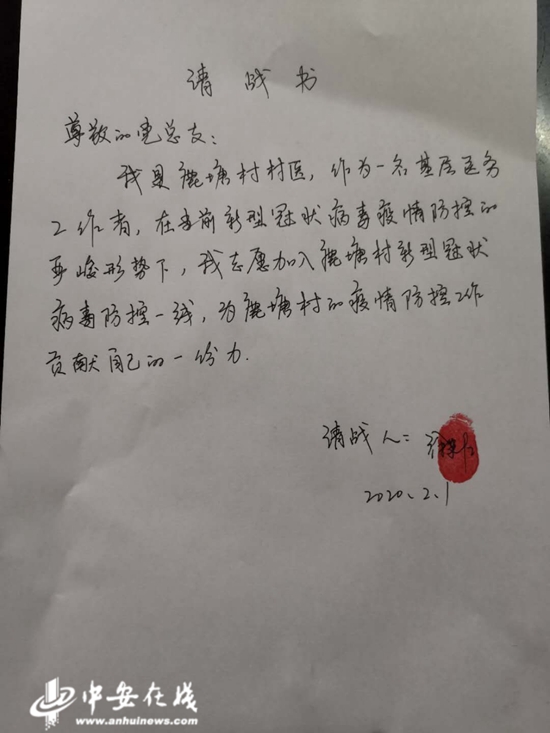 请战书
尊敬的党总支：
我是鹿塘村村医，作为一名基层医务
工作者，在当前新型冠状病毒疫情防控的
严峻形势下，我志愿加入鹿塘村新型冠状
病毒防控一线，为鹿塘村的疫情防控工作
贡献自己的一份力.
请战人：
2020.2.1
中安在线
www.anhuinews.com